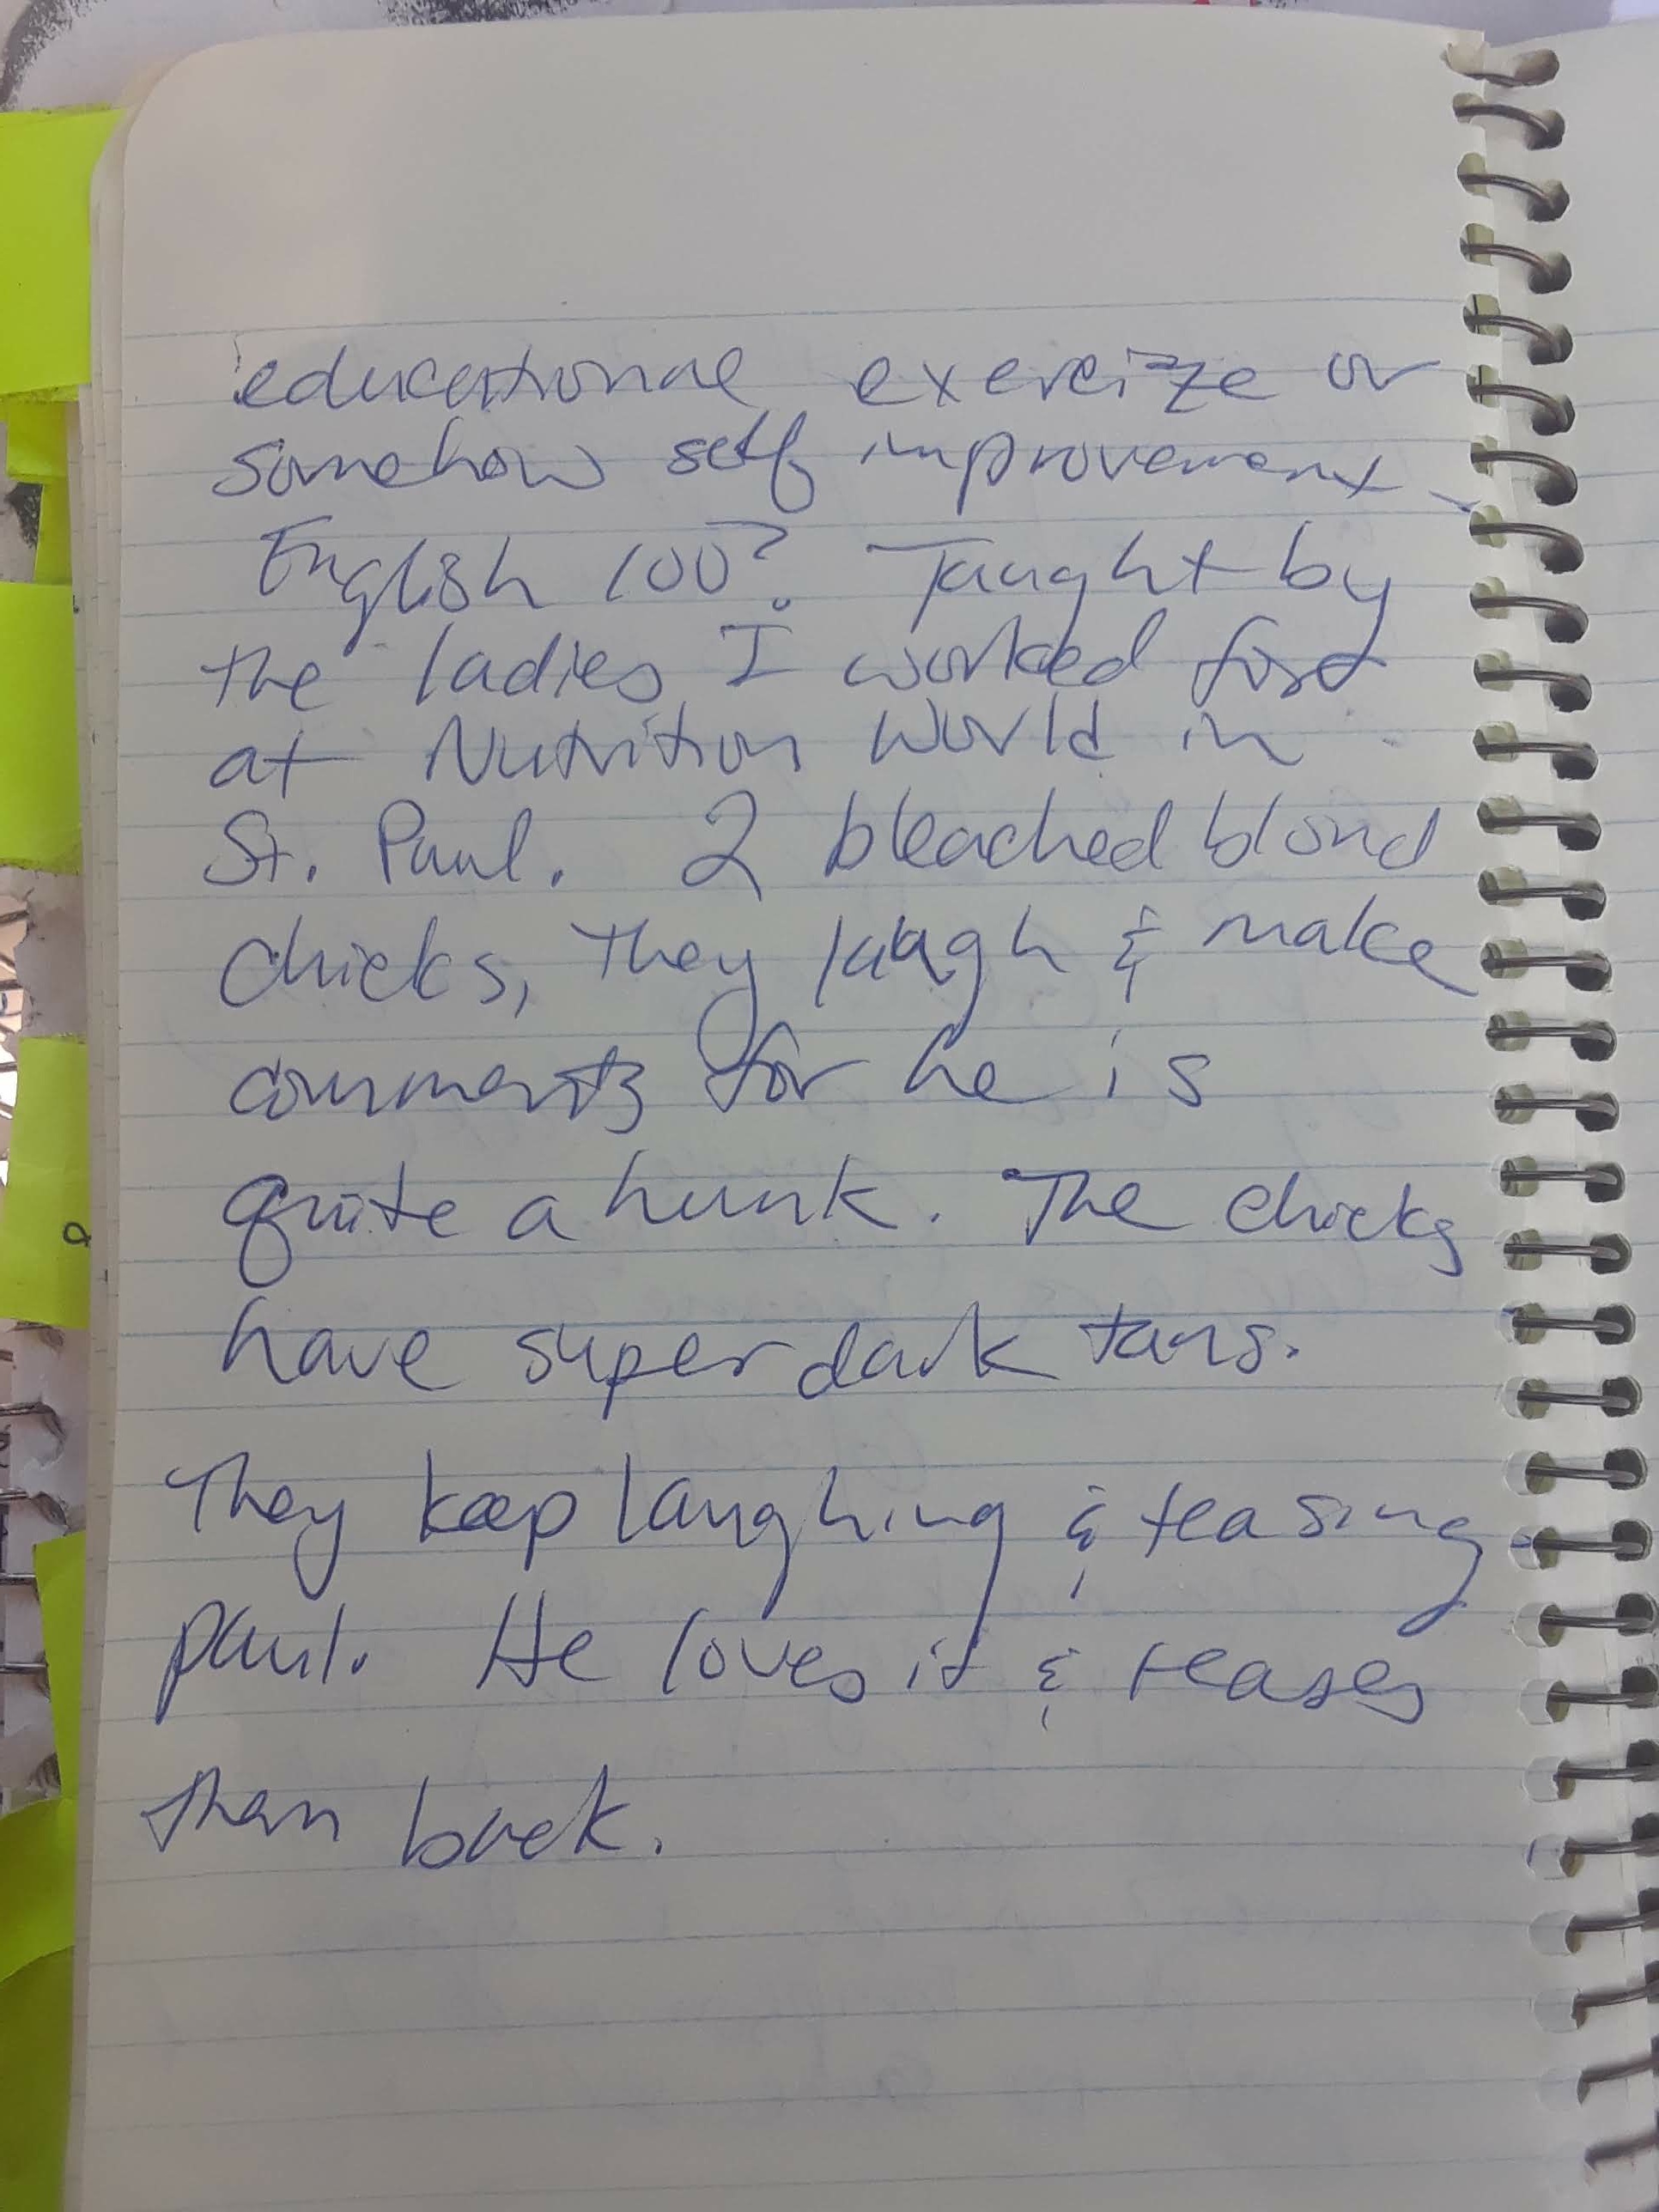 educational exercize or
somehow self improvement.
English 100? Taught by
the ladies I worked for
at Nutrition World in
St. Paul. 2 bleached blond
chicks, they laugh & make
comments for he is
quite a hunk. The chicks
have super dark tans.
They keep laughing & teasing
paul. He loves it & teases
them back.